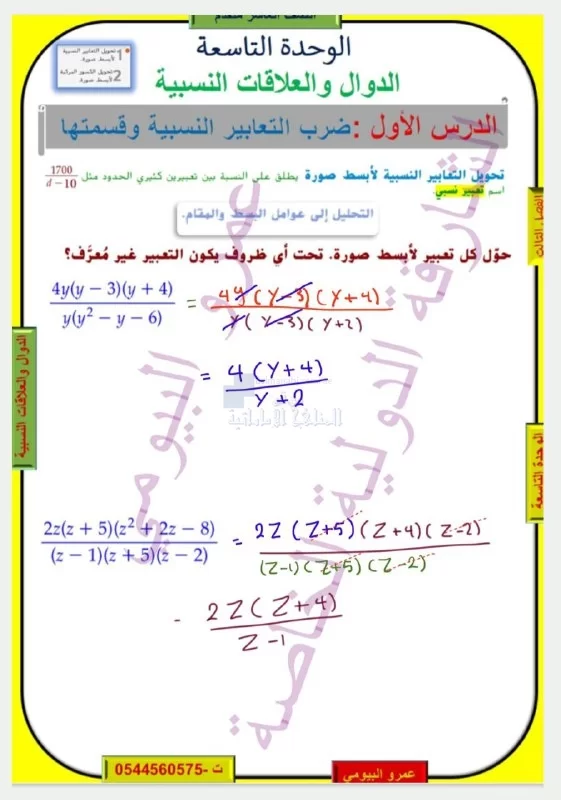 الوحدة التاسعة
الدوال والعلاقات النسبية
1 تحويل التعابير النسبية لأبسط صورة.
2 تحويل الكسور المركبة لأبسط صورة.
الدرس الأول: ضرب التعابير النسبية وقسمتها
تحويل التعابير النسبية لأبسط صورة يطلق على النسبة بين تعبيرين كثيري الحدود مثل 1700/(d − 10)
اسم تعبير نسبي.
التحليل إلى عوامل البسط والمقام.
حوّل كل تعبير لأبسط صورة. تحت أي ظروف يكون التعبير غير مُعرَّف؟
4y(y − 3)(y + 4) / y(y² − y − 6) = 4y(y-3)(y+4) / y(y-3)(y+2)
= 4(y+4) / y+2
المناهج الإماراتية
2z(z + 5)(z² + 2z − 8) / (z − 1)(z + 5)(z − 2) = 2Z(Z+5)(Z+4)(Z-2) / (Z-1)(Z+5)(Z-2)
- 2Z(Z+4) / Z-1
الفصل الثالث
الدوال والعلاقات النسبية
الوحدة التاسعة
عمرو البيومي
الشارقة الدولية الخاصة
عمرو البيومي
ت -0544560575